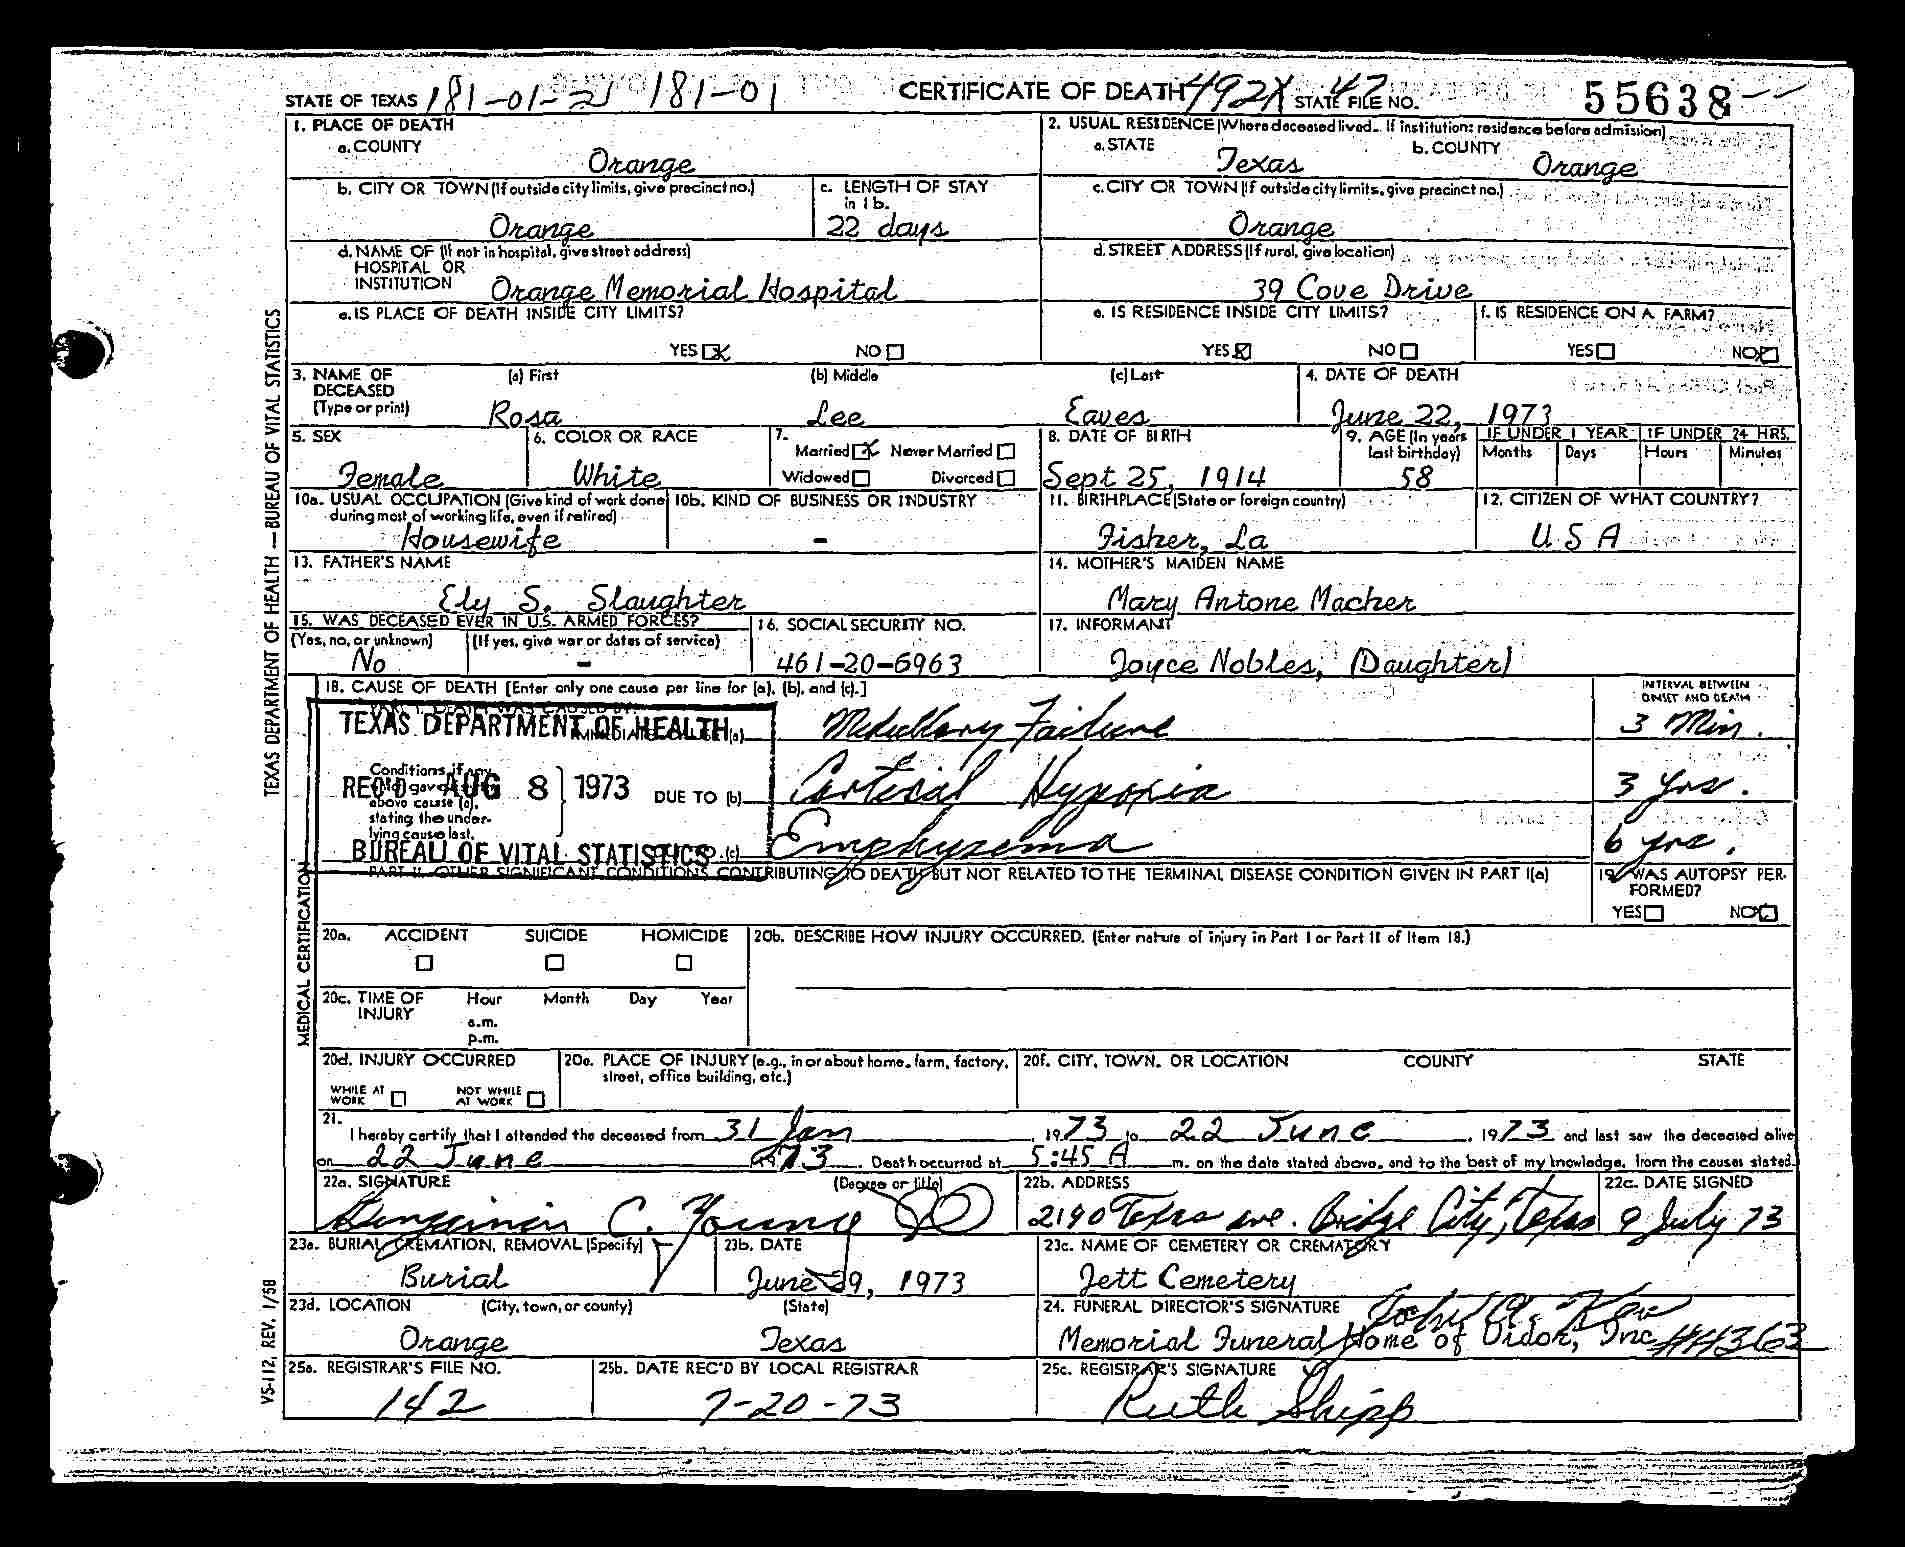 STATE OF TEXAS 181-01-21 181-01 CERTIFICATE OF DEATH 492X 42 STATE FILE NO. 55638
1. PLACE OF DEATH
a. COUNTY
Orange
2. USUAL RESIDENCE (Where deceased lived. If institution: residence before admission)
a. STATE Texas b. COUNTY Orange
b. CITY OR TOWN (If outside city limits, give precinct no.)
Orange
c. LENGTH OF STAY in 1b.
22 days
c. CITY OR TOWN (If outside city limits, give precinct no.)
Orange
d. NAME OF (If not in hospital, give street address)
HOSPITAL OR
INSTITUTION Orange Memorial Hospital
d. STREET ADDRESS (If rural, give location)
39 Cove Drive
e. IS PLACE OF DEATH INSIDE CITY LIMITS?
YES NO
e. IS RESIDENCE INSIDE CITY LIMITS?
YES NO
f. IS RESIDENCE ON A FARM?
YES NO
3. NAME OF DECEASED (Type or print)
(a) First Rosa
(b) Middle Lee
(c) Last Eaves
4. DATE OF DEATH
June 22, 1973
5. SEX
Female
6. COLOR OR RACE
White
7.
Married Never Married
Widowed Divorced
8. DATE OF BIRTH
Sept 25, 1914
9. AGE (In years last birthday)
58
IF UNDER 1 YEAR
Months Days
IF UNDER 24 HRS.
Hours Minutes
10a. USUAL OCCUPATION (Give kind of work done
during most of working life, even if retired)
Housewife
10b. KIND OF BUSINESS OR INDUSTRY
-
11. BIRTHPLACE (State or foreign country)
Fisher, La
12. CITIZEN OF WHAT COUNTRY?
U S A
13. FATHER'S NAME
Ely S. Slaughter
14. MOTHER'S MAIDEN NAME
Mary Antone Macher
15. WAS DECEASED EVER IN U.S. ARMED FORCES?
(Yes, no, or unknown) (If yes, give war or dates of service)
No -
16. SOCIAL SECURITY NO.
461-20-6963
17. INFORMANT
Joyce Nobles, (Daughter)
18. CAUSE OF DEATH [Enter only one cause per line for (a), (b), and (c).]
INTERVAL BETWEEN
ONSET AND DEATH
PART I. DEATH WAS CAUSED BY:
IMMEDIATE CAUSE (a) Medullary Failure 3 Min.
Conditions, if any,
which gave rise to
above cause (a),
stating the under-
lying cause last.
DUE TO (b) Cortical Hypoxia 3 yrs.
DUE TO (c) Emphysema 6 yrs.
TEXAS DEPARTMENT OF HEALTH
REC'D AUG 8 1973
BUREAU OF VITAL STATISTICS
PART II. OTHER SIGNIFICANT CONDITIONS CONTRIBUTING TO DEATH BUT NOT RELATED TO THE TERMINAL DISEASE CONDITION GIVEN IN PART I(a)
19. WAS AUTOPSY PER-
FORMED?
YES NO
20a. ACCIDENT SUICIDE HOMICIDE
20b. DESCRIBE HOW INJURY OCCURRED. (Enter nature of injury in Part I or Part II of Item 18.)
20c. TIME OF INJURY
Hour Month Day Year
a.m.
p.m.
20d. INJURY OCCURRED
WHILE AT WORK NOT WHILE AT WORK
20e. PLACE OF INJURY (e.g., in or about home, farm, factory,
street, office building, etc.)
20f. CITY, TOWN, OR LOCATION COUNTY STATE
21.
I hereby certify that I attended the deceased from 31 Jan, 1973 to 22 June, 1973 and last saw the deceased alive
on 22 June 1973. Death occurred at 5:45 A m. on the date stated above, and to the best of my knowledge, from the causes stated.
22a. SIGNATURE (Degree or title)
Benjamin C. Young DO
22b. ADDRESS
2190 Texas ave. Bridge City, Texas
22c. DATE SIGNED
9 July 73
23a. BURIAL, CREMATION, REMOVAL (Specify)
Burial
23b. DATE
June 29, 1973
23c. NAME OF CEMETERY OR CREMATORY
Jett Cemetery
23d. LOCATION (City, town, or county) (State)
Orange Texas
24. FUNERAL DIRECTOR'S SIGNATURE
Memorial Funeral Home of Vidor, Inc #4363
25a. REGISTRAR'S FILE NO.
142
25b. DATE REC'D BY LOCAL REGISTRAR
7-20-73
25c. REGISTRAR'S SIGNATURE
Ruth Shipp
TEXAS DEPARTMENT OF HEALTH — BUREAU OF VITAL STATISTICS
MEDICAL CERTIFICATION
VS-112, REV. 1/58